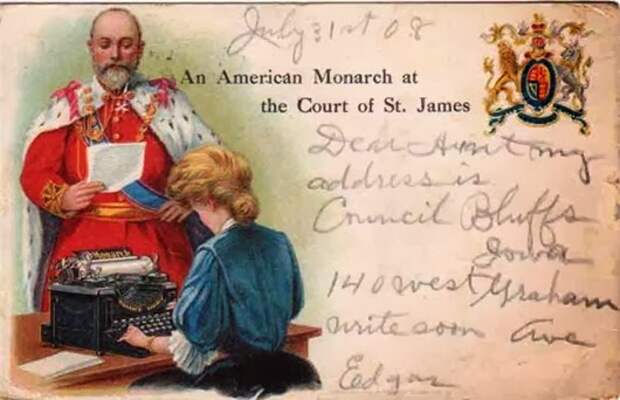 July 31st 08
An American Monarch at
the Court of St. James
Dear Aunt my
address is
Council Bluffs
Iowa
140 west Graham
write soon Ave
Edgar
Monarch